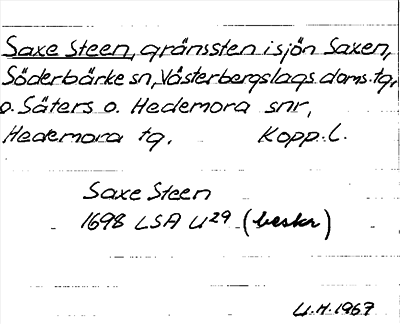 Saxe Steen, gränssten i sjön Saxen,
Söderbärke sn, Västerbergslags doms. tg,
o. Säters o. Hedemora snr,
Hedemora tg. Kopp. l.
Saxe Steen
1698 LSA U29 (beskr)
U.H. 1967